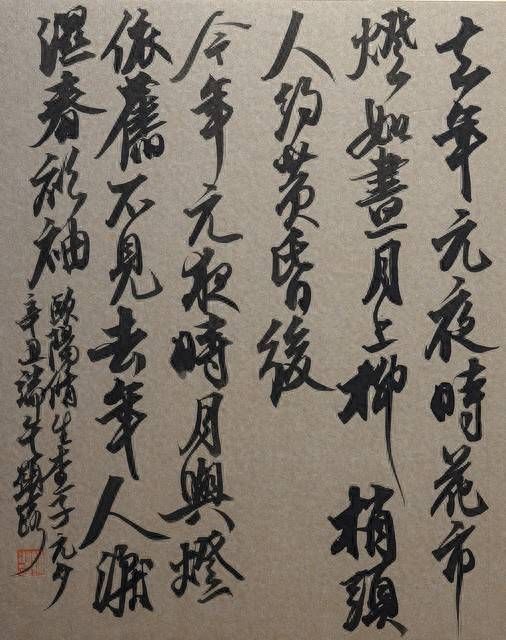 去年元夜時花市
燈如晝月上柳梢頭
人約黃昏後
今年元夜時月與燈
依舊不見去年人淚
濕春衫袖
歐陽脩生查子元夕
辛丑端午